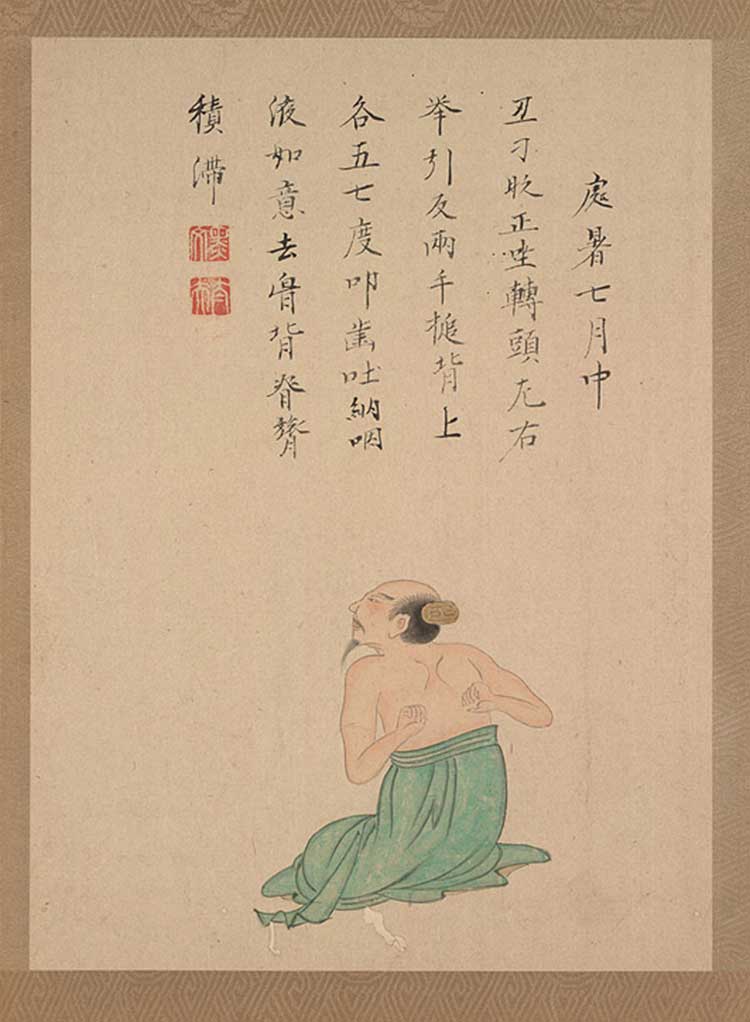 處暑七月中
丑刁时正坐轉頭左右
举引反兩手搥背上
各五七度叩齒吐納咽
液如意去骨背脊膂
積滯